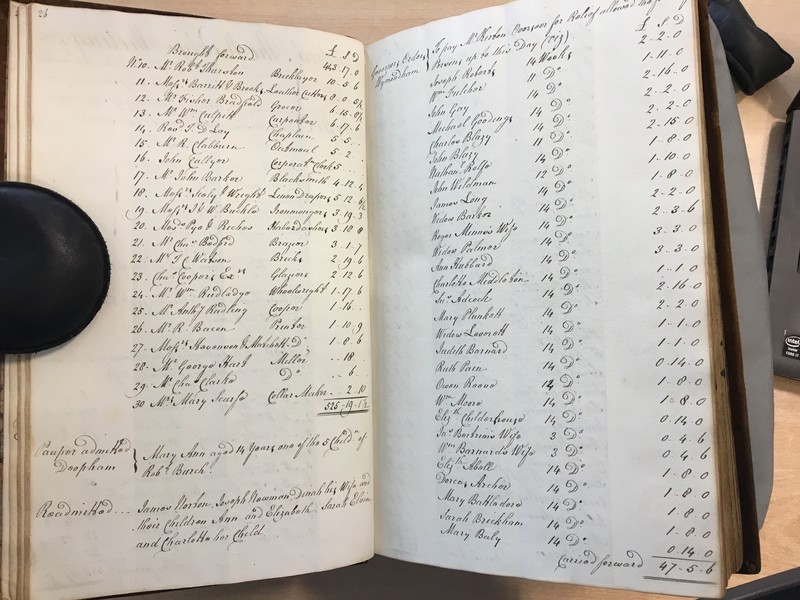 26
Brought forward £ S D
463 - 17 . 0
N. 10. Mr Robt Thurston Bricklayer 10 . 5 . 6
11. Messrs Barritt & Brock Leather Cutters 8 . 0 .
12. Mr Fisher Bradford Grocer 6 . 15 .
13. Mr Wm Culpitt Carpenter 6 . 17 . 6
14. Revd T. D Loy Chaplain 5 . 5 .
15 Mr R. Clabburn Oatmeal 5 . 2
16. John Cullyer Corporatn Clerk 5
17. Mr John Barker Blacksmith 4 . 12 .
18. Messrs Wright Linen Drapers 3 . 12 .
19. Messrs & W. Buckle Ironmongers 3 . 19 . 3
20. Messrs Pye & Haberdashers 3 . 10 . 8
21. Mr Chas Bedford Brazier 3 . 1 . 7
22. Mr T. C Watson Bricks 2 . 19 . 6
23. Chas Cooper's Exrs Glaziers 2 . 12 . 6
24. Mr Wm Wheelwright 1 - 17 . 6
25. Mr Anthy Rudling Cooper 1 - 16 . .
26. Mr R. Bacon Printer 1 - 10 . 9
27. Messrs Do 1 - 8 . 6
28. Mr George Hart Miller .. 18 .
29. Mr Chas Clarke Do .. 6 .
30 Mrs Mary Scarfe Collar Maker .. 2 . 10
525 - 19 - 1 ½
Pauper admitted Deopham } Mary Ann aged 14 Years one of the 5 Childn of
Robt Burch.
Readmitted ... James Norton, Joseph Newman Dinah his Wife and
their Children Ann and Elizabeth Sarah
and Charlotte her Child
Governors Orders Wymondham } To pay Mr Overseer for Relief allowed
Persons up to this Day (Viz) £ S D
Joseph Roberts 14 Weeks 2 - 2 - 0
Wm 11 Do 1 - 11 - 0
John Gay 14 Do 2 - 16 - 0
Michael Goodings 14 Do 2 - 2 . 0
Charles Blazy 14 Do 2 - 2 . 0
John Blazy 11 Do 2 - 15 0
Nathan Rolfe 14 Do 1 - 8 . 0
John Weldman 12 Do 1 - 10 . 0
James Long 14 Do 1 - 8 . 0
Widow Barker 14 Do 2 - 2 - 0
Roger Minns's Wife 14 Do 2 - 3 - 6
Widow Palmer 14 Do 3 - 3 - 0
Ann Hubbard 14 Do 3 - 3 - 0
Charlotte 14 Do 1 - 1 - 0
Adcock 14 Do 2 - 16 - 0
Mary Plunkett 14 Do 2 - 2 - 0
Widow 14 Do 1 - 1 - 0
Judith Barnard 14 Do 1 - 1 - 0
Ruth 14 Do 0 . 14 . 0
Owen Reeve 14 Do 1 - 8 . 0
Wm Moore 14 Do 1 - 8 . 0
Elizth Childerhouse 14 Do 0 . 14 . 0
Wife 3 Do 0 . 4 . 6
Wm Barnard's Wife 3 Do 0 . 4 . 6
Elizth 14 Do 1 - 8 . 0
Dorcas Archer 14 Do 1 - 8 . 0
Mary Battledore 14 Do 1 . 8 . 0
Sarah Breckham 14 Do 1 . 8 . 0
Mary Baly 14 Do 0 . 14 . 0
Carried forward 47 - 5 - 6
intel